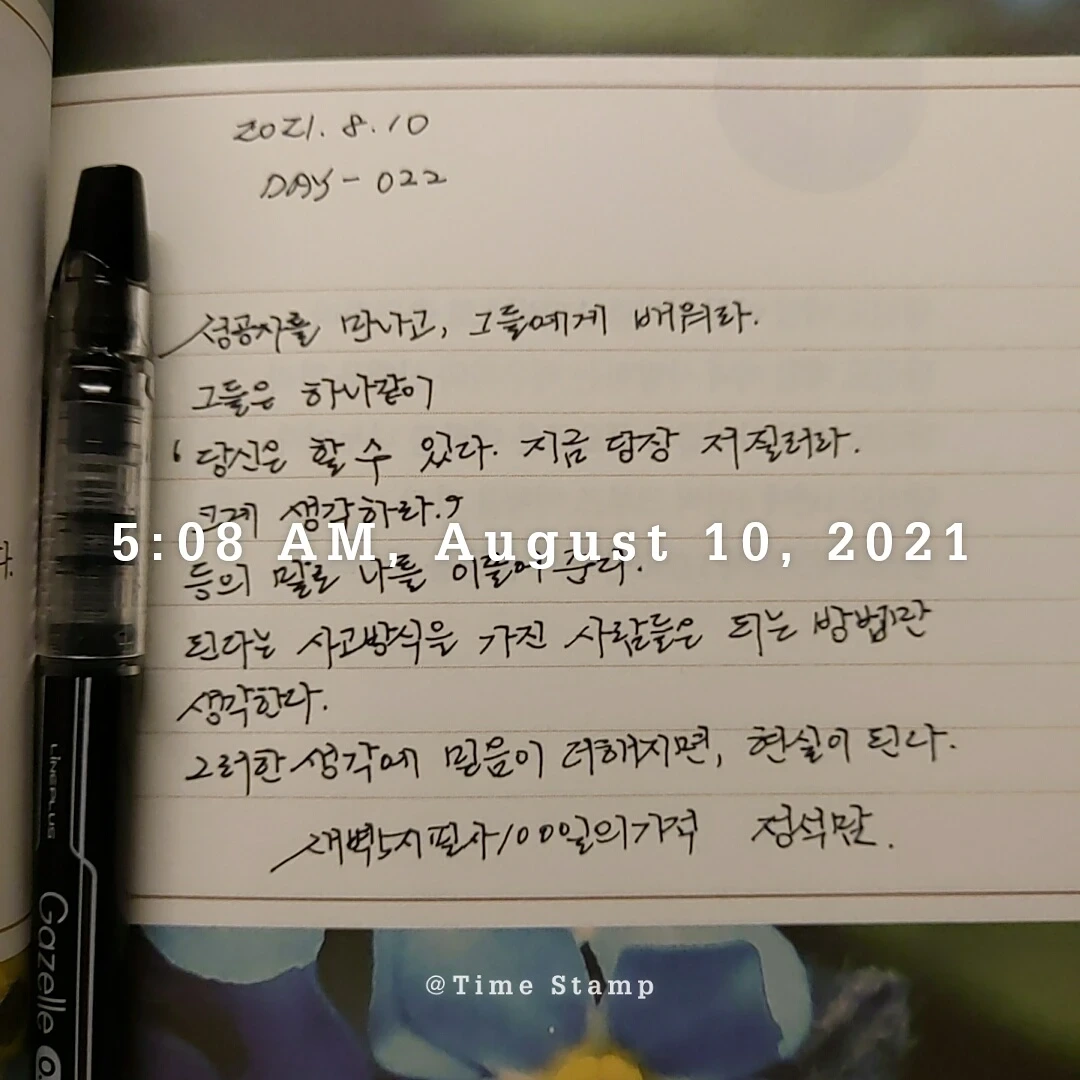 2021.8.10
DAY - 022
성공자를 만나고, 그들에게 배워라.
그들은 하나같이
'당신은 할 수 있다. 지금 당장 저질러라.
크게 생각하라.'
5:08 AM, August 10, 2021
등의 말로 나를 이끌어 준다.
된다는 사고방식을 가진 사람들은 되는 방법만
생각한다.
그러한 생각에 믿음이 더해지면, 현실이 된다.
새벽5시필사100일의기적 정석만.
@Time Stamp
LINEPLUS
Gazelle
다.